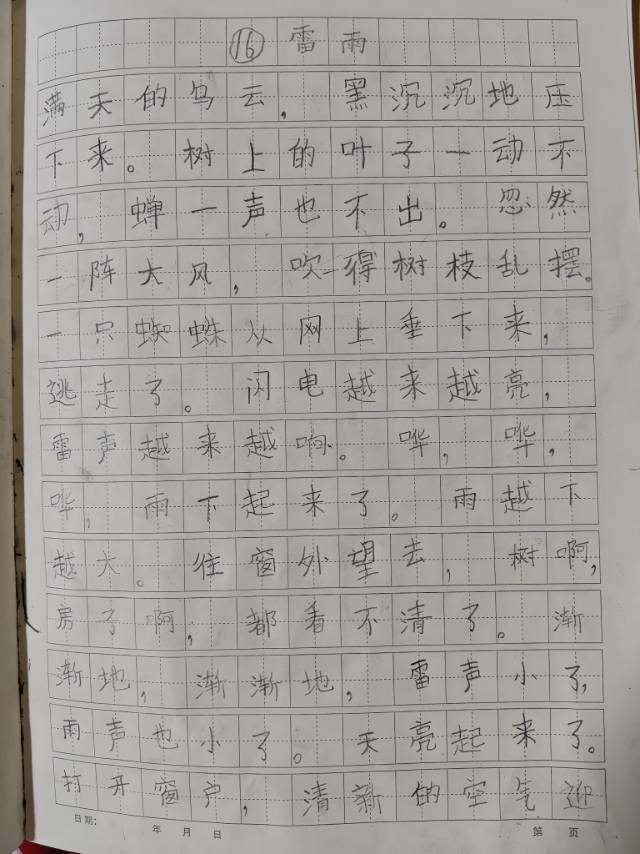 ⑯ 雷雨
满天的乌云，黑沉沉地压
下来。树上的叶子一动不
动，蝉一声也不出。忽然
一阵大风，吹得树枝乱摆。
一只蜘蛛从网上垂下来，
逃走了。闪电越来越亮，
雷声越来越响。哗，哗，
哗，雨下起来了。雨越下
越大。往窗外望去，树啊，
房子啊，都看不清了。渐
渐地，渐渐地，雷声小了，
雨声也小了。天亮起来了。
打开窗户，清新的空气迎
日期： 年 月 日 第 页